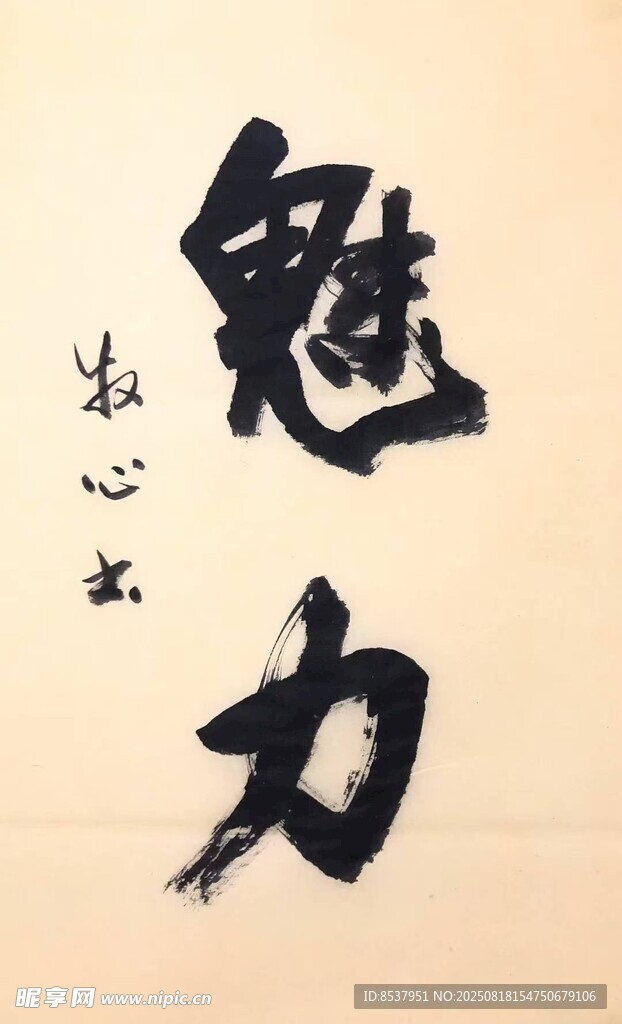 魅力
牧心书
昵享网 www.nipic.cn
ID:8537951 NO:20250818154750679106